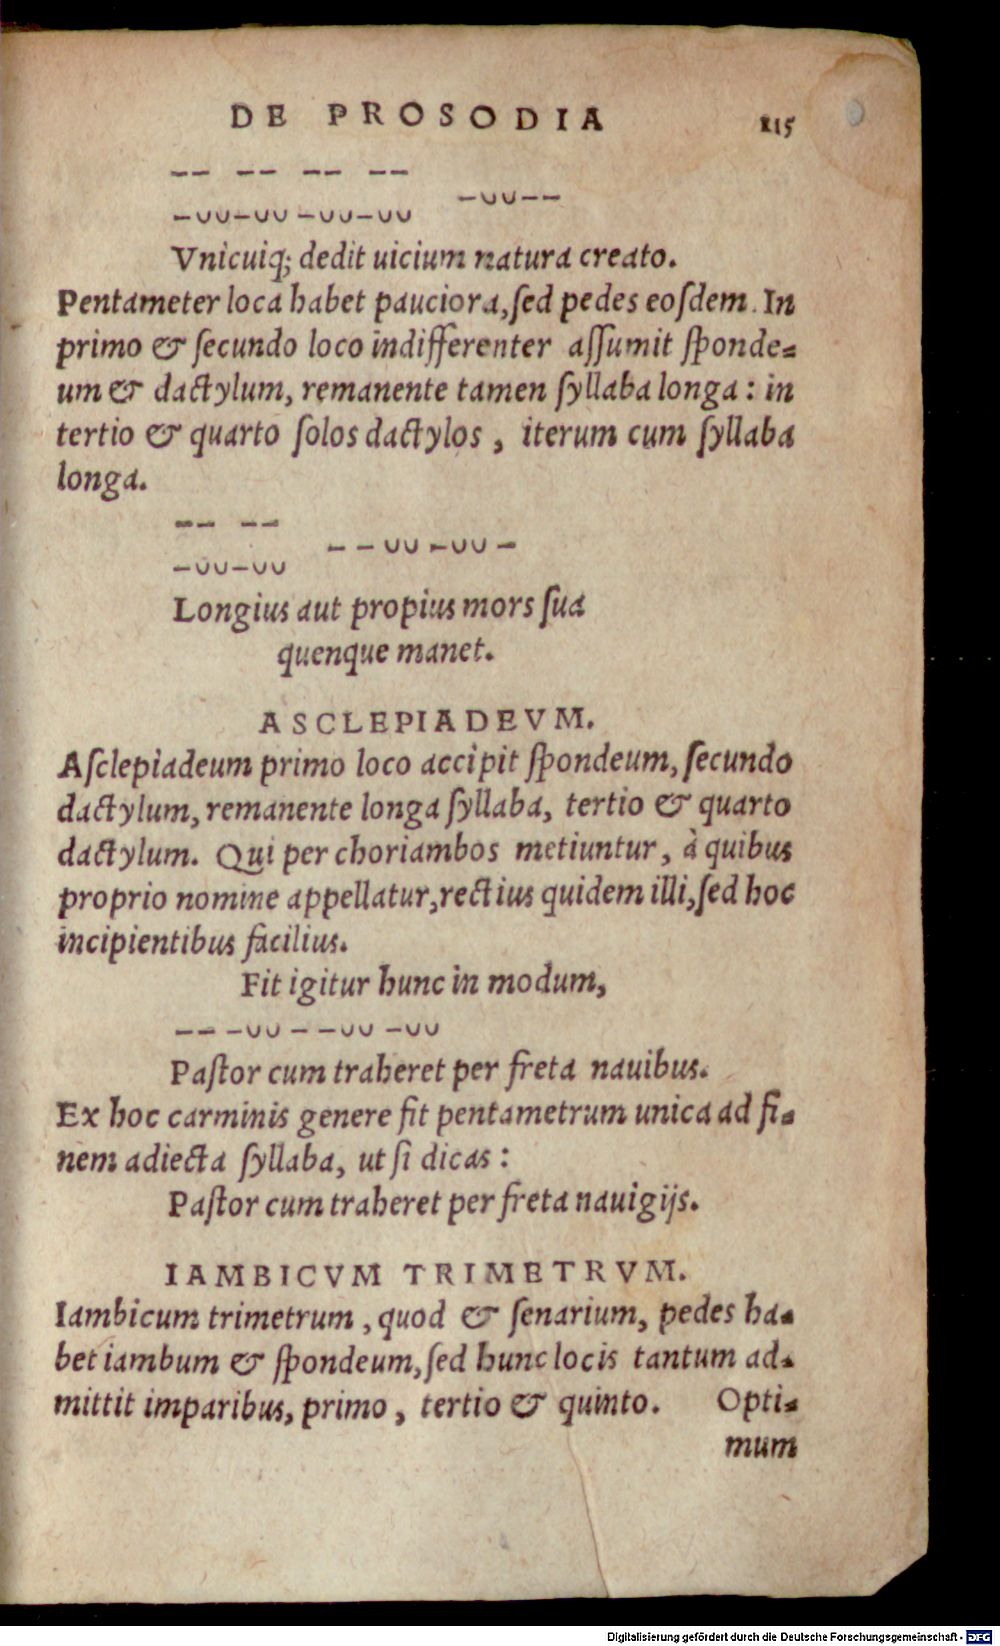 DE PROSODIA 115
–– –– –– ––
–∪∪–∪∪ –∪∪–∪∪ –∪∪––
Vnicuiq; dedit uicium natura creato.
Pentameter loca habet pauciora, ſed pedes eoſdem. In
primo & ſecundo loco indifferenter aſſumit ſponde-
um & dactylum, remanente tamen ſyllaba longa: in
tertio & quarto ſolos dactylos, iterum cum ſyllaba
longa.
–– ––
–∪∪–∪∪ – –∪∪ –∪∪ –
Longius aut propius mors ſua
quenque manet.
ASCLEPIADEVM.
Aſclepiadeum primo loco accipit ſpondeum, ſecundo
dactylum, remanente longa ſyllaba, tertio & quarto
dactylum. Qui per choriambos metiuntur, à quibus
proprio nomine appellatur, rectius quidem illi, ſed hoc
incipientibus facilius.
Fit igitur hunc in modum,
–– –∪∪ – –∪∪ –∪∪
Paſtor cum traheret per freta nauibus.
Ex hoc carminis genere fit pentametrum unica ad fi-
nem adiecta ſyllaba, ut ſi dicas:
Paſtor cum traheret per freta nauigijs.
IAMBICVM TRIMETRVM.
Iambicum trimetrum, quod & ſenarium, pedes ha-
bet iambum & ſpondeum, ſed hunc locis tantum ad-
mittit imparibus, primo, tertio & quinto. Opti-
mum
Digitalisierung gefördert durch die Deutsche Forschungsgemeinschaft - DFG